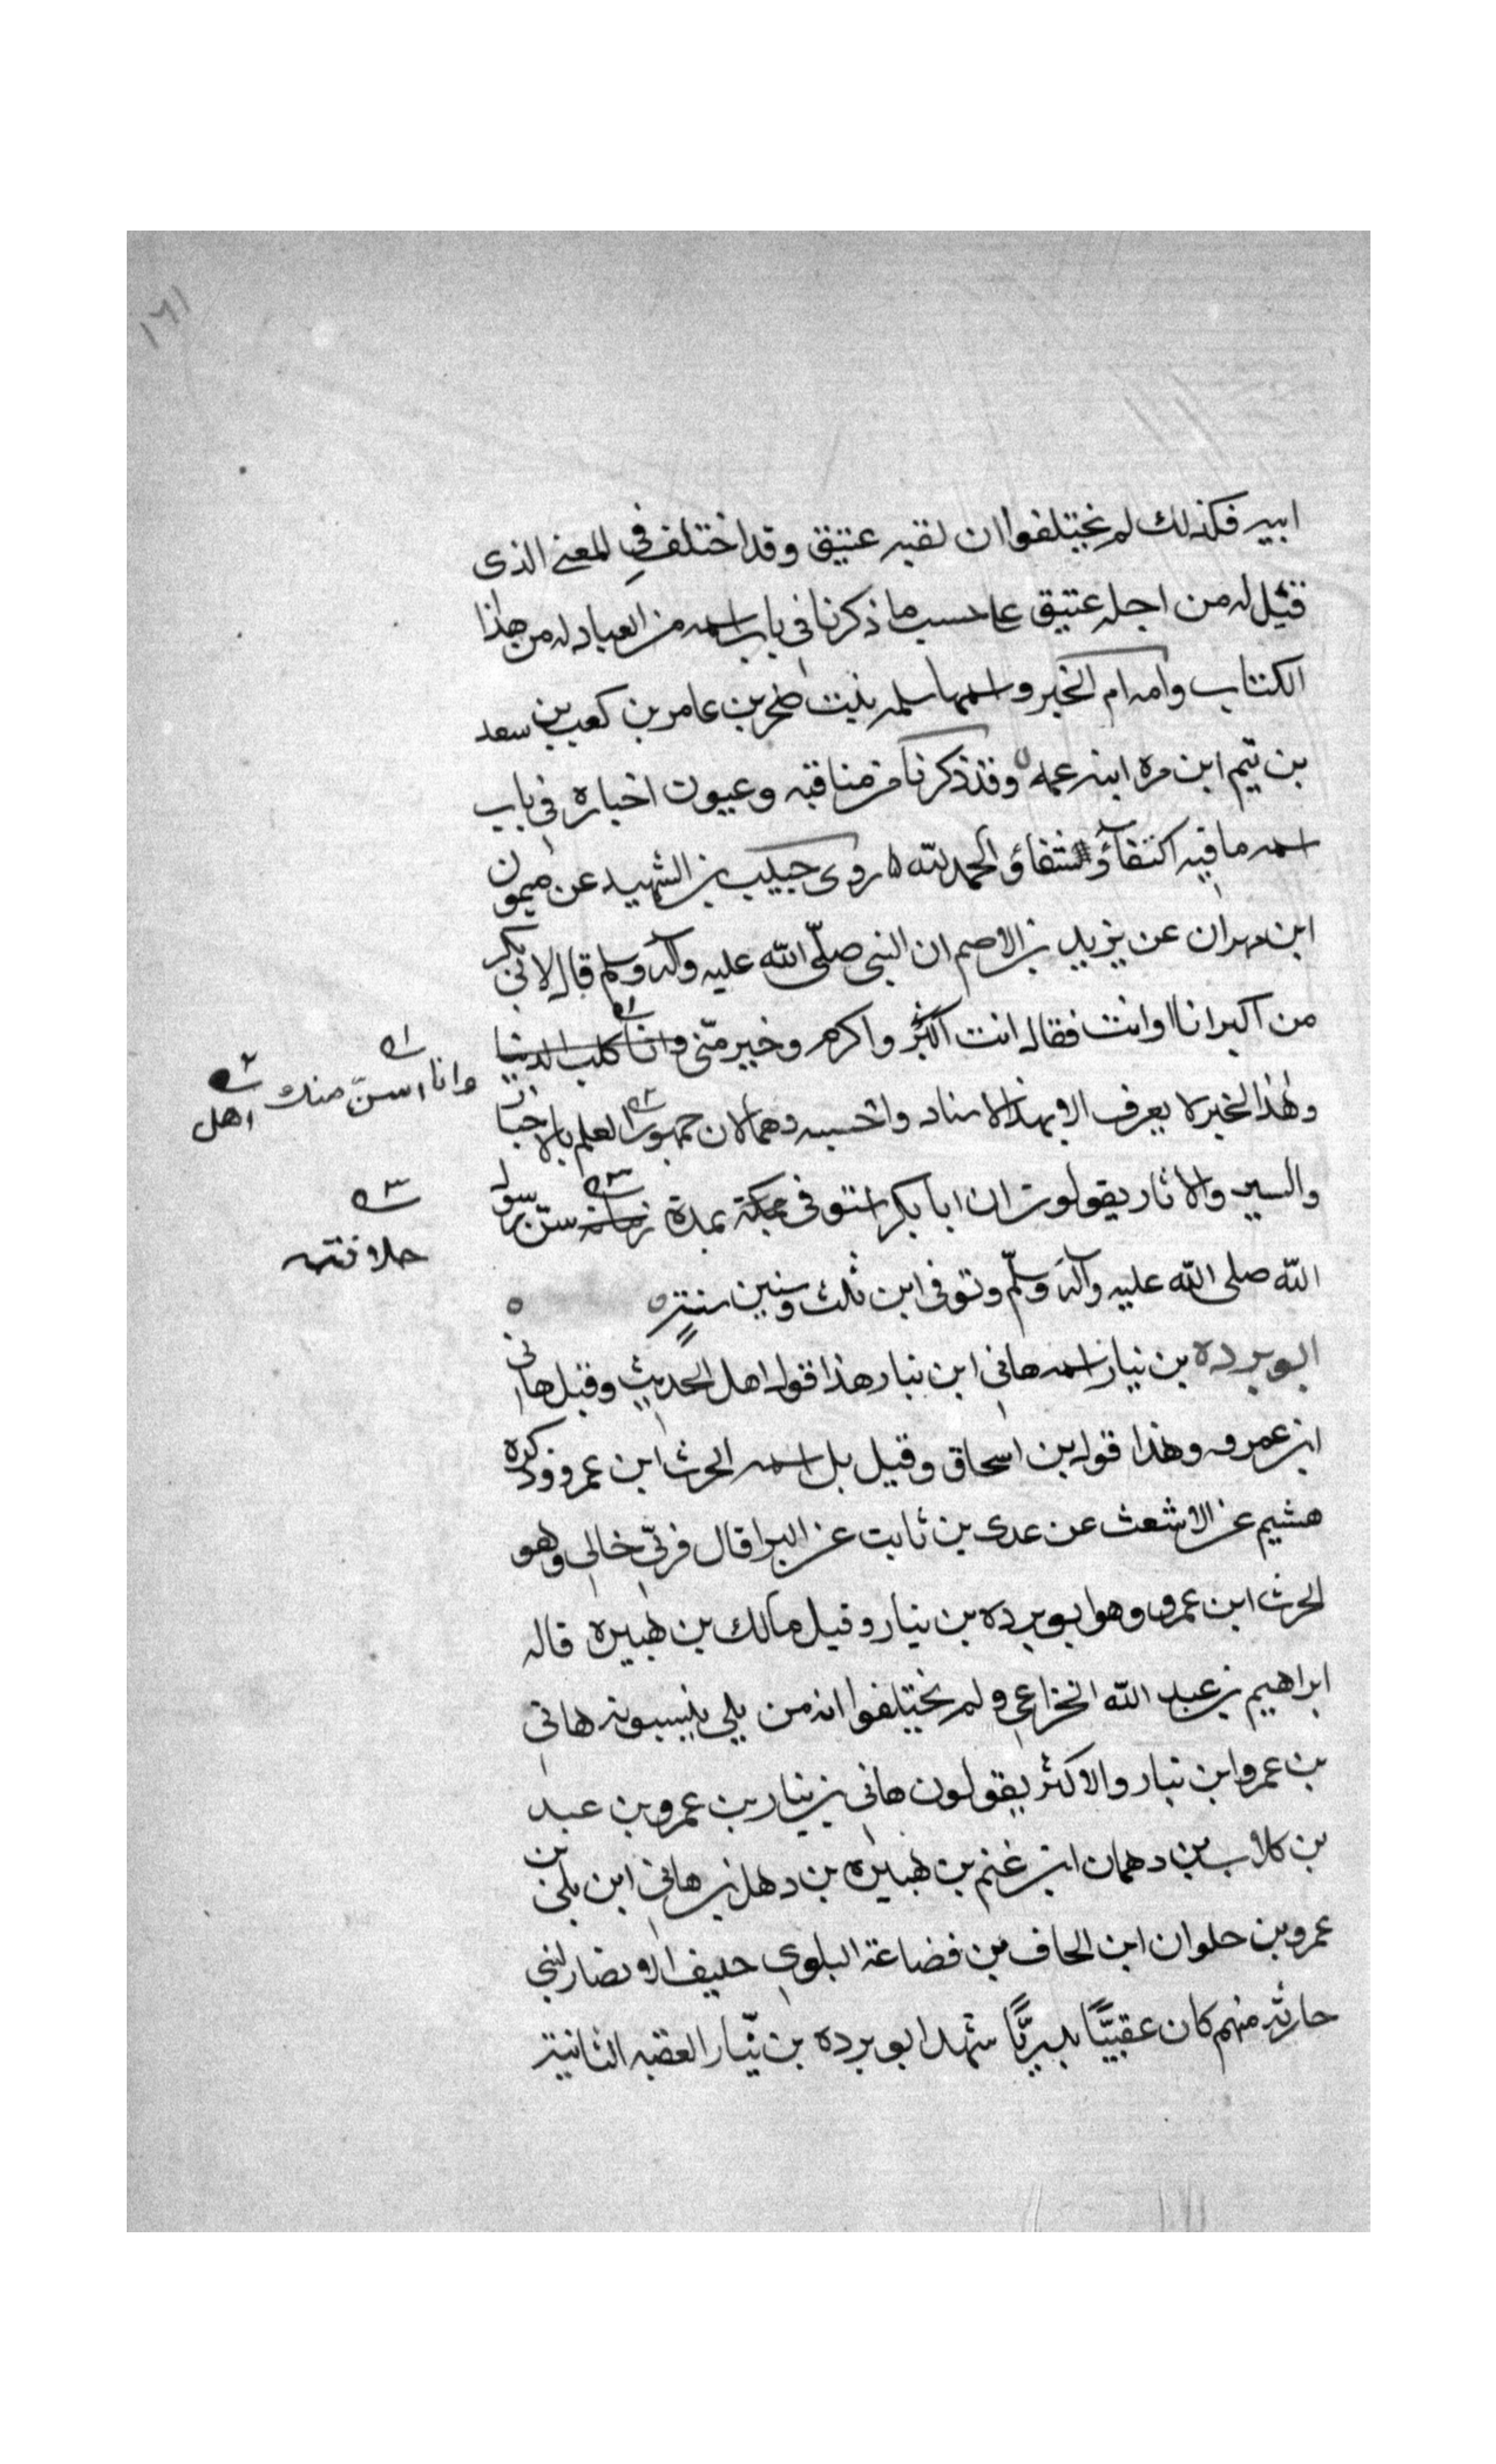 ١٦١
ابيه فكذلك لم يختلفوا ان لقبه عتيق وقد اختلف في المعنى الذى
قيل له من اجله عتيق على حسب ما ذكرنا في باب اسمه من العبادله من هذا
الكتاب وامه ام الخير واسمها سلمه بنت صخر بن عامر بن كعب بن سعد
بن تيم ابن مره ابنه عمه وقد ذكرنا من مناقبه وعيون اخباره في باب
اسمه ما فيه اكتفآ وشفا والحمد لله ه روى حبيب بن الشهيد عن ميمون
ابن مهران عن يزيد بن الاصم ان النبي صلّى الله عليه وآله وسلم قال لابي بكر
من اكبر انا او انت فقال انت اكبر واكرم وخير منّى وانا
وانا اسنّ منك
اهل
وهذا الخبر لا يعرف الا بهذا الاسناد واحسبه وهما لان جمهور العلم بالاخبار
والسير والاثار يقولون ان ابا بكر استوفى بمدة سنّ رسول
خلافته
الله صلى الله عليه وآله وسلّم وتوفى ابن ثلث وستين سنةٍ ه ه
ابو برده بن نيار اسمه هاني ابن نيار هذا قول اهل الحديث وقيل هاني
ابن عمرو وهذا قول بن اسحاق وقيل بل اسمه الحرث ابن عمرو وذكره
هشيم عن الاشعث عن عدى بن ثابت عن البرا قال مرّ بي خالى وهو
الحرث ابن عمرو وهو ابو برده بن نيار وقيل مالك بن هبيره قاله
ابراهيم بن عبد الله الخزاعى ولم يختلفوا انه من بلي ينسبونه هاني
بن عمرو ابن نيار والاكثر يقولون هاني بن نيار بن عمرو بن عبيد
بن كلاب بن دهمان ابن غنم بن هبيره بن دهل بن هانى ابن بلى بن
عمرو بن حلوان ابن الحاف بن قضاعة البلوى حليف الانصار لبني
حارثه منهم كان عقبيًّا بدريًّا شهد ابو برده بن نيّار العقبه الثانية